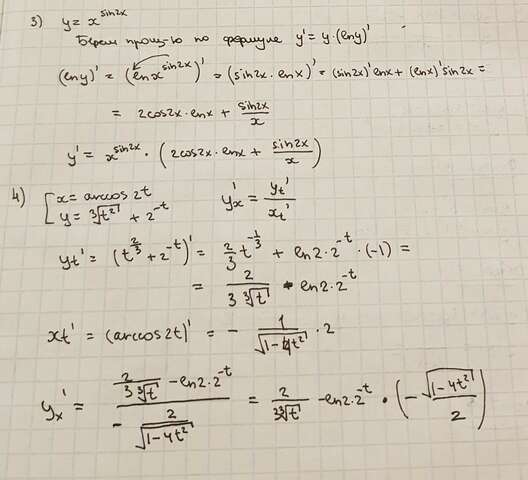 3) y = x^{sin2x}
Берем произ-ю по формуле y' = y·(lny)'
(lny)' = (lnx^{sin2x})' = (sin2x · lnx)' = (sin2x)'lnx + (lnx)'sin2x =
= 2cos2x·lnx + \frac{sin2x}{x}
y' = x^{sin2x} · (2cos2x·lnx + \frac{sin2x}{x})
4) [x = arccos2t
y = \sqrt[3]{t^2} + 2^{-t}
y_x' = \frac{y_t'}{x_t'}
y_t' = (t^{\frac{2}{3}} + 2^{-t})' = \frac{2}{3} t^{-\frac{1}{3}} + ln2·2^{-t}·(-1) =
= \frac{2}{3\sqrt[3]{t}} - ln2·2^{-t}
x_t' = (arccos2t)' = - \frac{1}{\sqrt{1-4t^2}} · 2
y_x' = \frac{\frac{2}{3\sqrt[3]{t}} - ln2·2^{-t}}{-\frac{2}{\sqrt{1-4t^2}}} = \frac{2}{3\sqrt[3]{t}} - ln2·2^{-t} · (-\frac{\sqrt{1-4t^2}}{2})